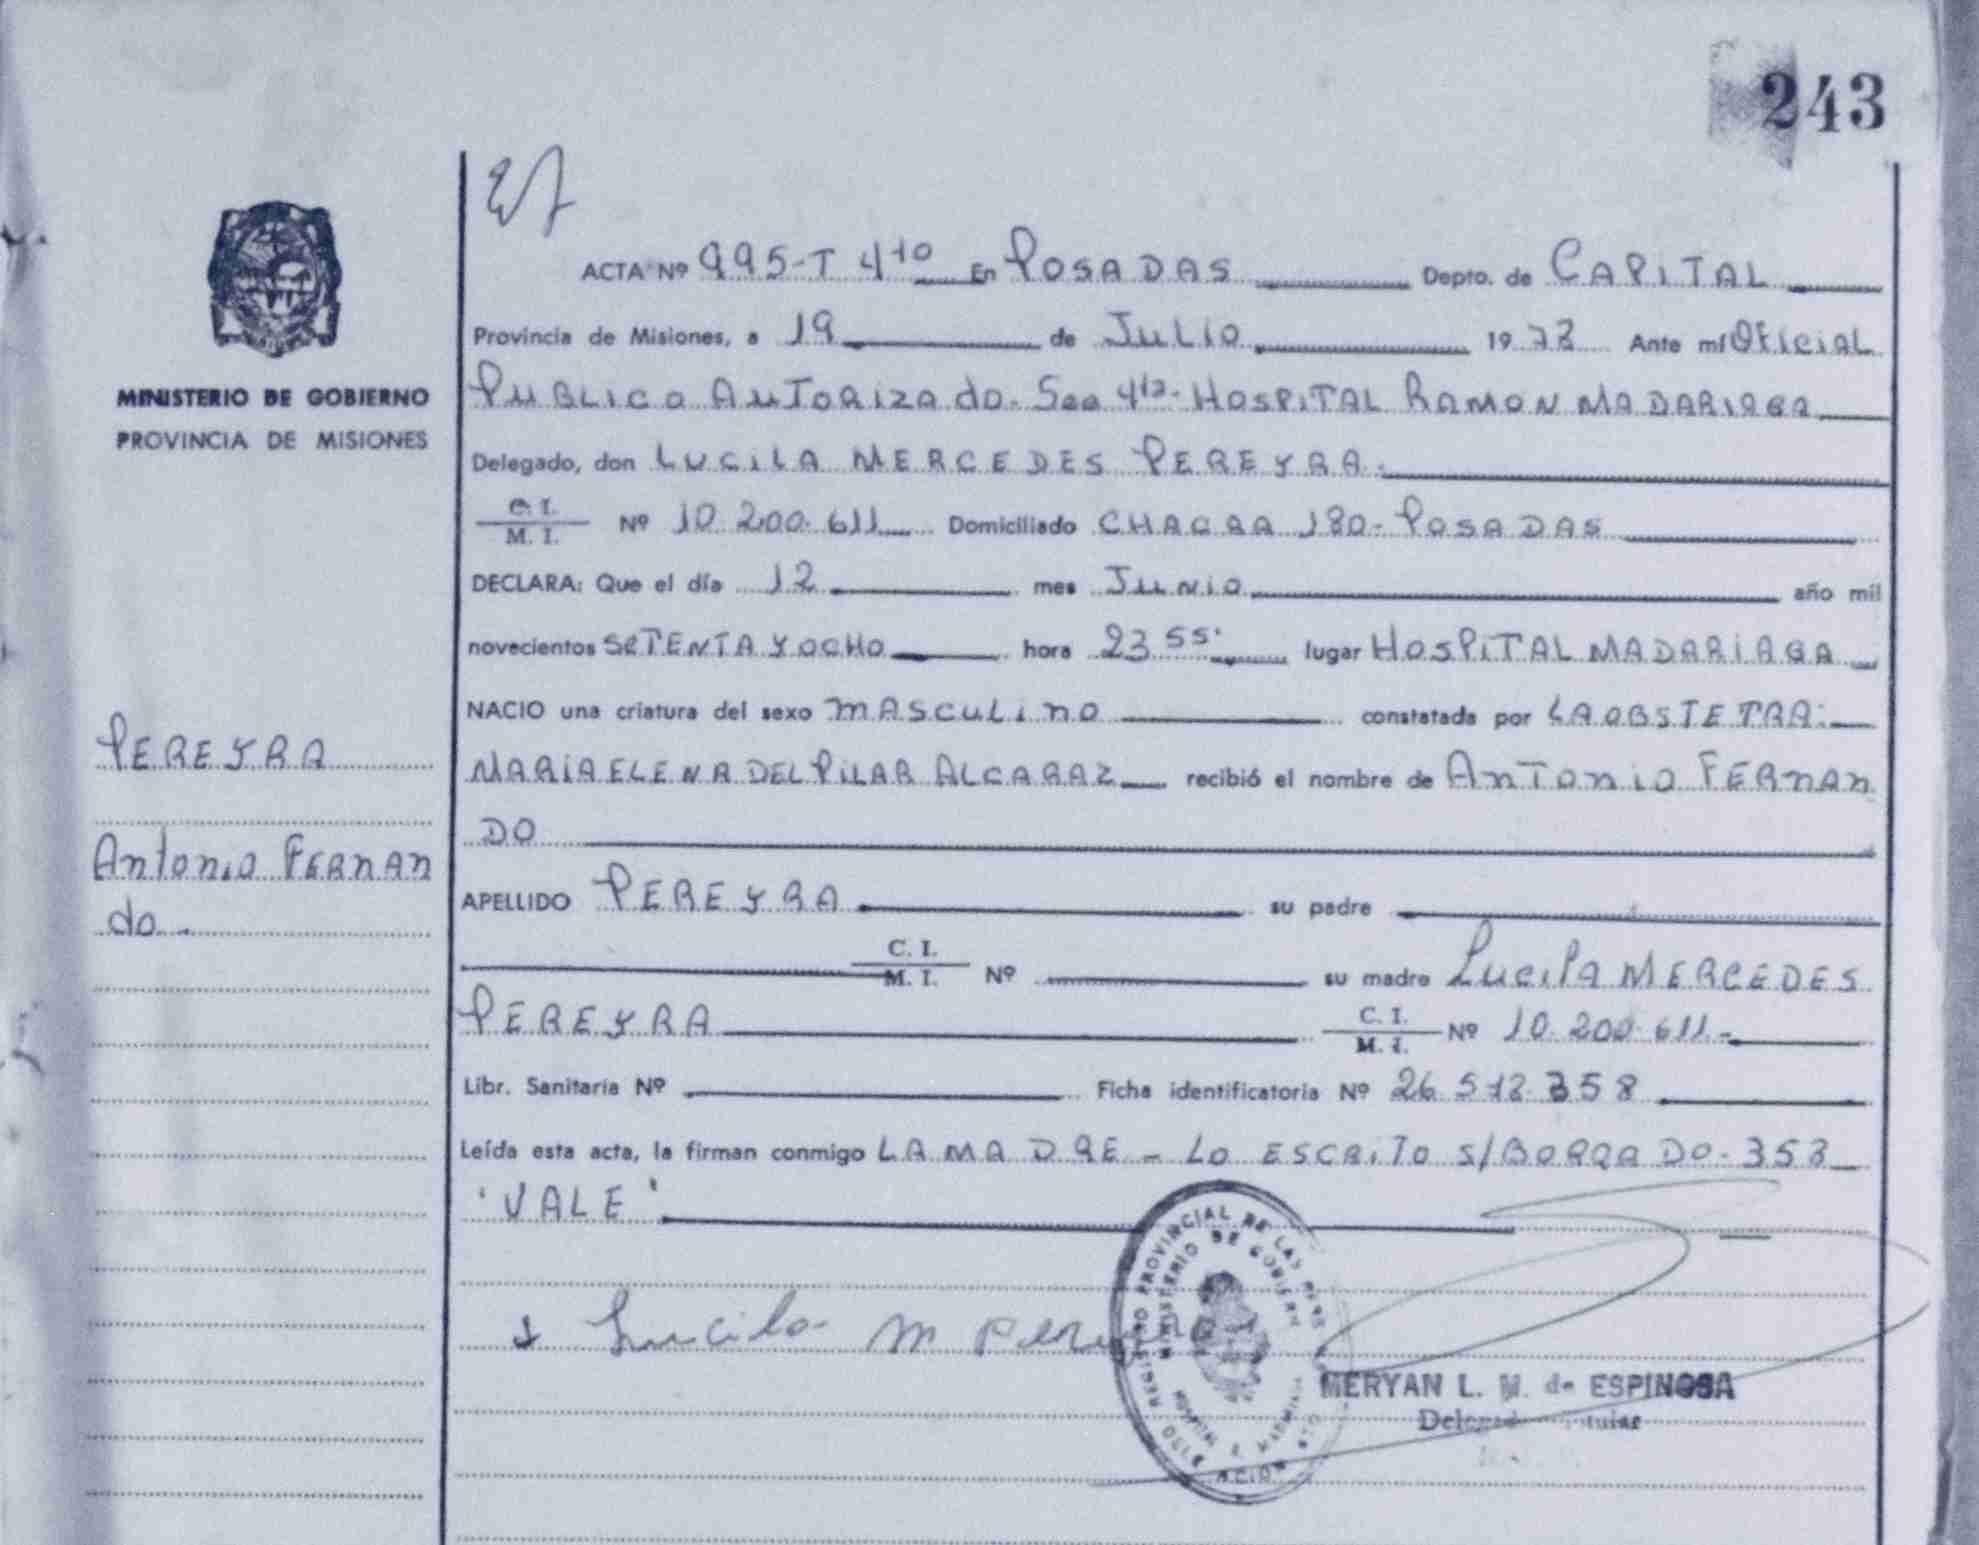 243
ACTA Nº 995-T 4to En POSADAS Depto. de CAPITAL
Provincia de Misiones, a 19 de JULIO 1978 Ante mí OFICIAL
PUBLICO AUTORIZADO. Sec 4ta. HOSPITAL RAMON MADARIAGA
MINISTERIO DE GOBIERNO
PROVINCIA DE MISIONES
Delegado, don LUCILA MERCEDES PEREYRA.
C. I.
M. I. Nº 10.200.611 Domiciliado CHACRA 180- POSADAS
DECLARA: Que el día 12 mes JUNIO año mil
novecientos SETENTA Y OCHO hora 23 55' lugar HOSPITAL MADARIAGA
NACIO una criatura del sexo MASCULINO constatada por LA OBSTETRA:
MARIA ELENA DEL PILAR ALCARAZ recibió el nombre de ANTONIO FERNAN
DO
PEREYRA
Antonio FERNAN
do -
APELLIDO PEREYRA su padre
C. I.
M. I. Nº su madre LUCILA MERCEDES
PEREYRA C. I.
M. I. Nº 10.200.611.-
Libr. Sanitaria Nº Ficha identificatoria Nº 26 512 358
Leída esta acta, la firman conmigo LA MADRE - LO ESCRITO S/BORRADO. 358
'VALE'
Lucila M
REGISTRO PROVINCIAL DE LAS
MINISTERIO DE GOBIERNO
MERYAN L. M. de ESPINOSA